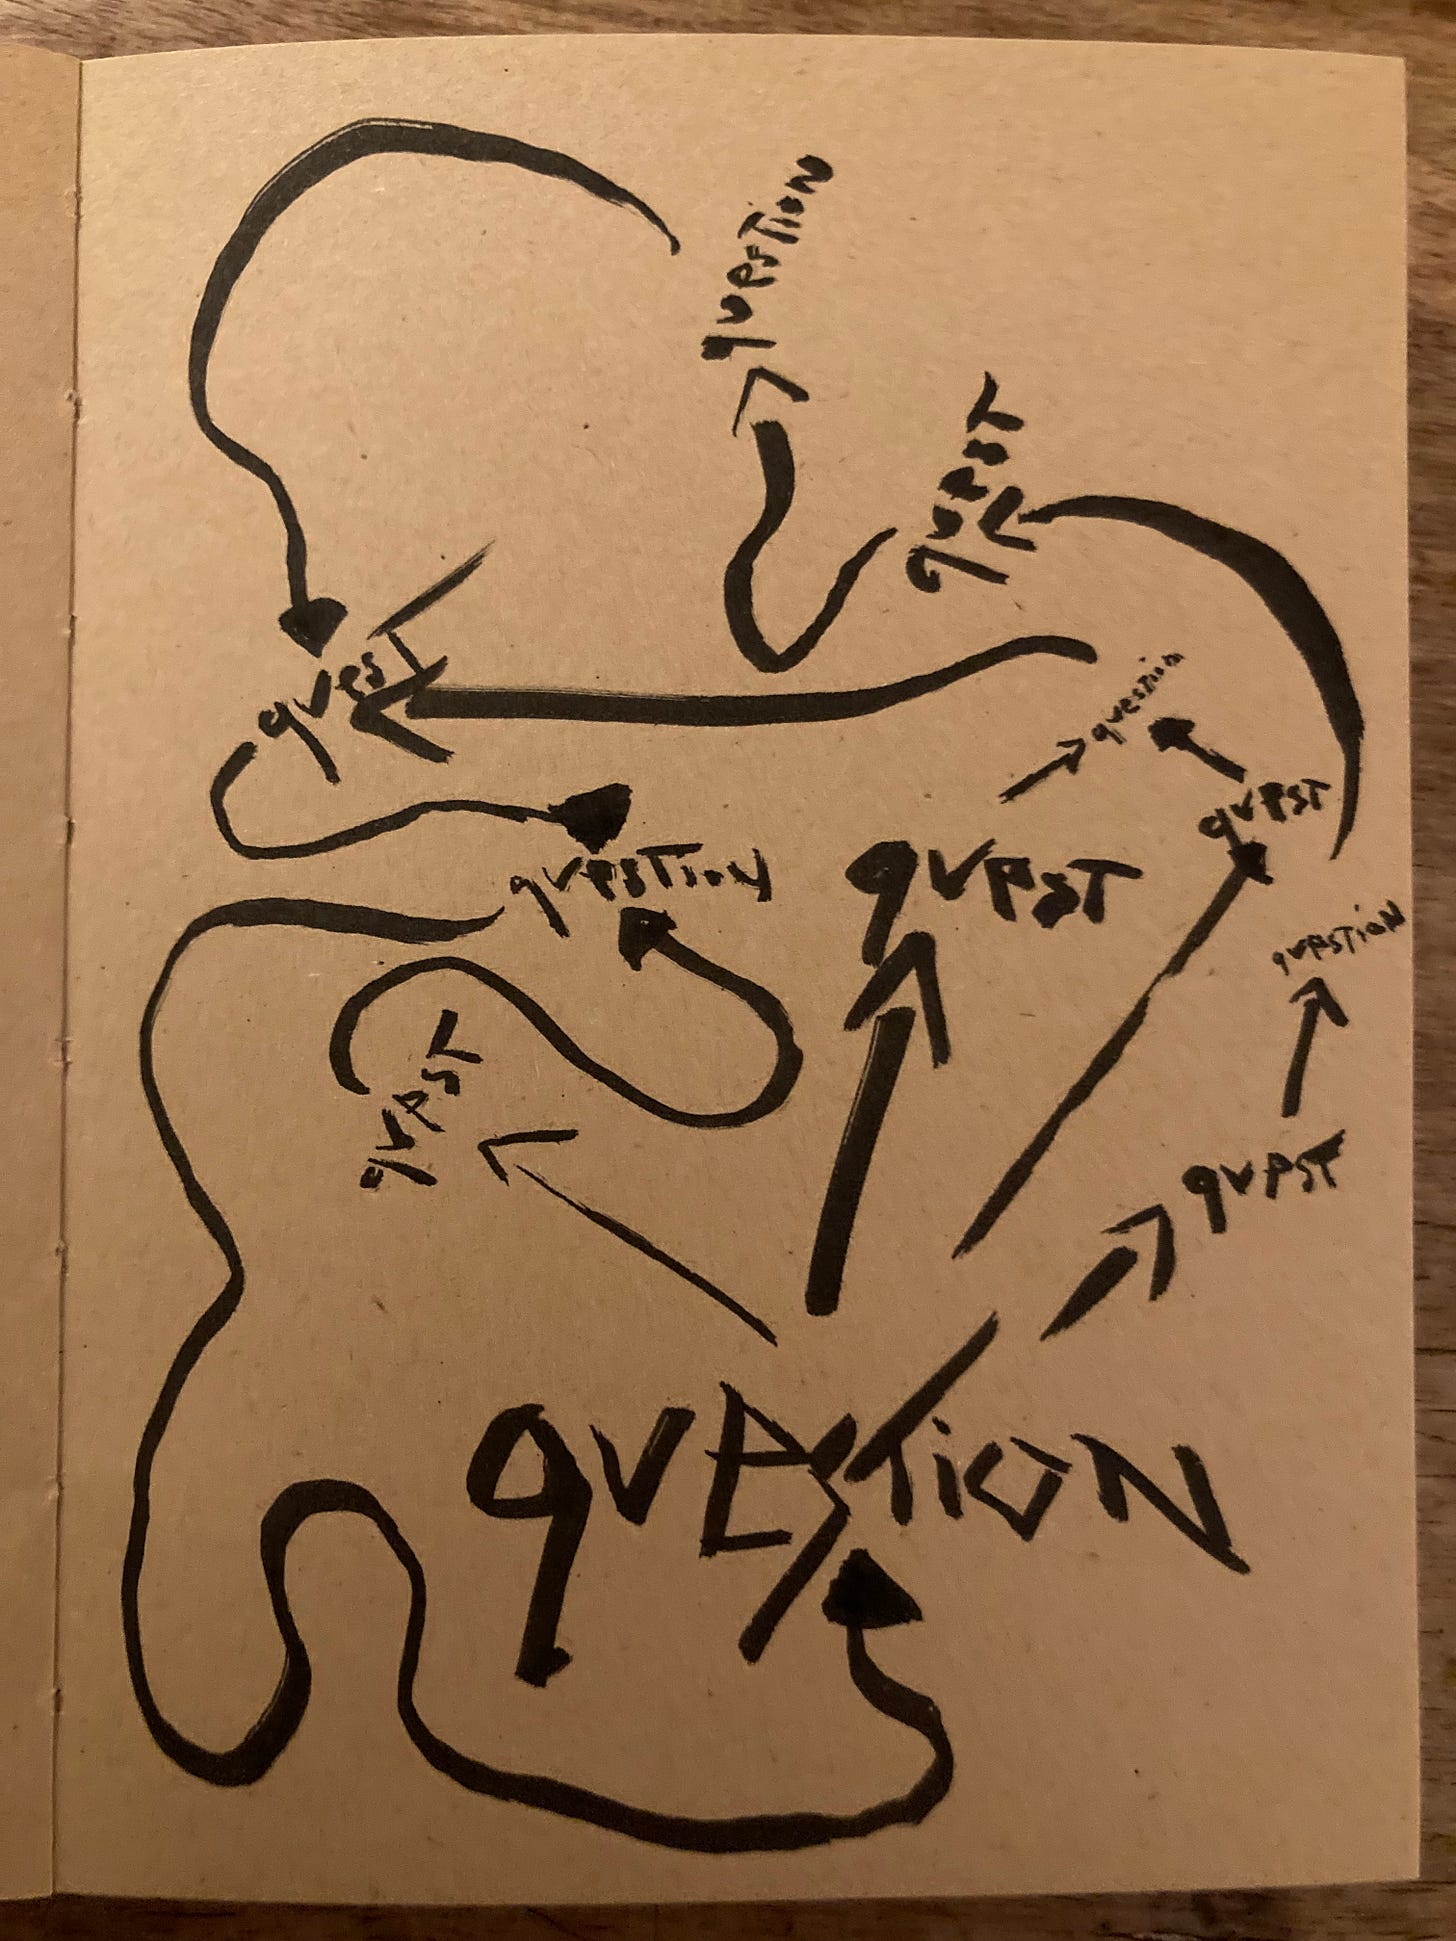 question
quest
question
quest
quest
quest
question
question
quest
quest
question